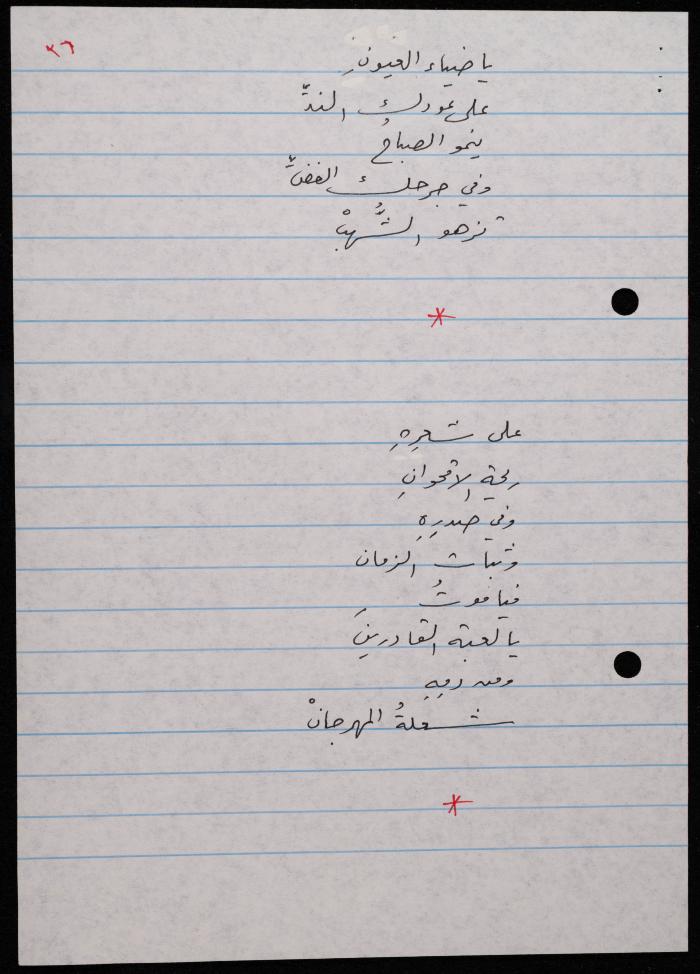 ٣٦
يا ضياء العيونِ
على عودك الندّيّ
ينمو الصباحُ
وفي جرحك الغضّ
تزهو الشُّهبْ
*
على شعرِهِ
رحية الاقحوانِ
وفي صدرِهِ
وثبات الزمان
فيا موتُ
يا لعبة القادرينِ
ومن دمِهِ
شعلةُ المهرجانْ
*